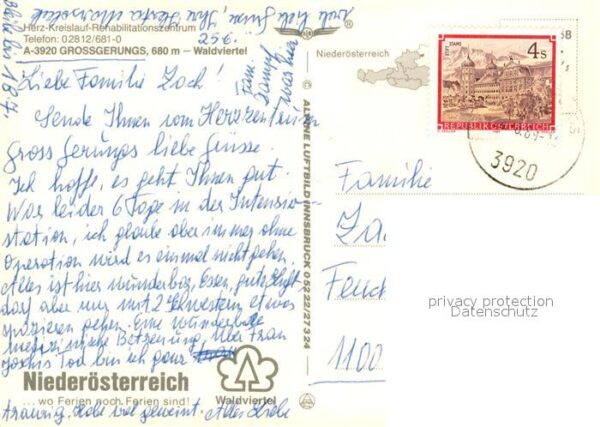 Herz-Kreislauf-Rehabilitationszentrum
Telefon: 02812/681-0
A-3920 GROSSGERUNGS, 680 m – Waldviertel
25 6.
Liebe Familie Zach!
Sende Ihnen vom Herzzentrum
Gross Gerungs liebe Grüsse.
Ich hoffe, es geht Ihnen gut.
War leider 6 Tage in der Intensiv-
station, ich glaube aber immer ohne
Operation wird es einmal nicht gehen.
Alles ist hier wunderbar, Essen, gute Luft
darf aber nur mit 2 Schwestern etwas
spazieren gehen. Eine wunderbare
medizinische Betreuung. Über Frau
Tod bin ich ganz
traurig. Habe viel geweint. Alles Liebe
Niederösterreich
... wo Ferien noch Ferien sind!
Waldviertel
war hier
© ALPINE LUFTBILD INNSBRUCK 05222/27324
Niederösterreich
STIFT STAMS
4 S
REPUBLIK ÖSTERREICH
3920
Familie
Za
1100
privacy protection
Datenschutz